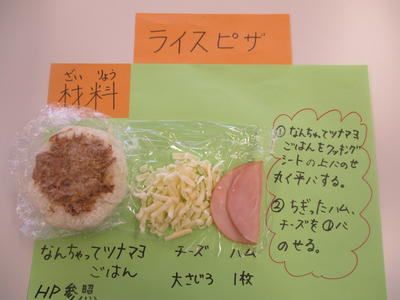 ライスピザ
ざい りょう
材料
なんちゃってツナマヨ
ごはん
HP参照
チーズ
大さじろ
ハム
1枚
①なんちゃってツナマヨ
ごはんをクッキング
シートの上にのせ
丸く平にする。
②ちぎったハム、
チーズを①に
のせる。